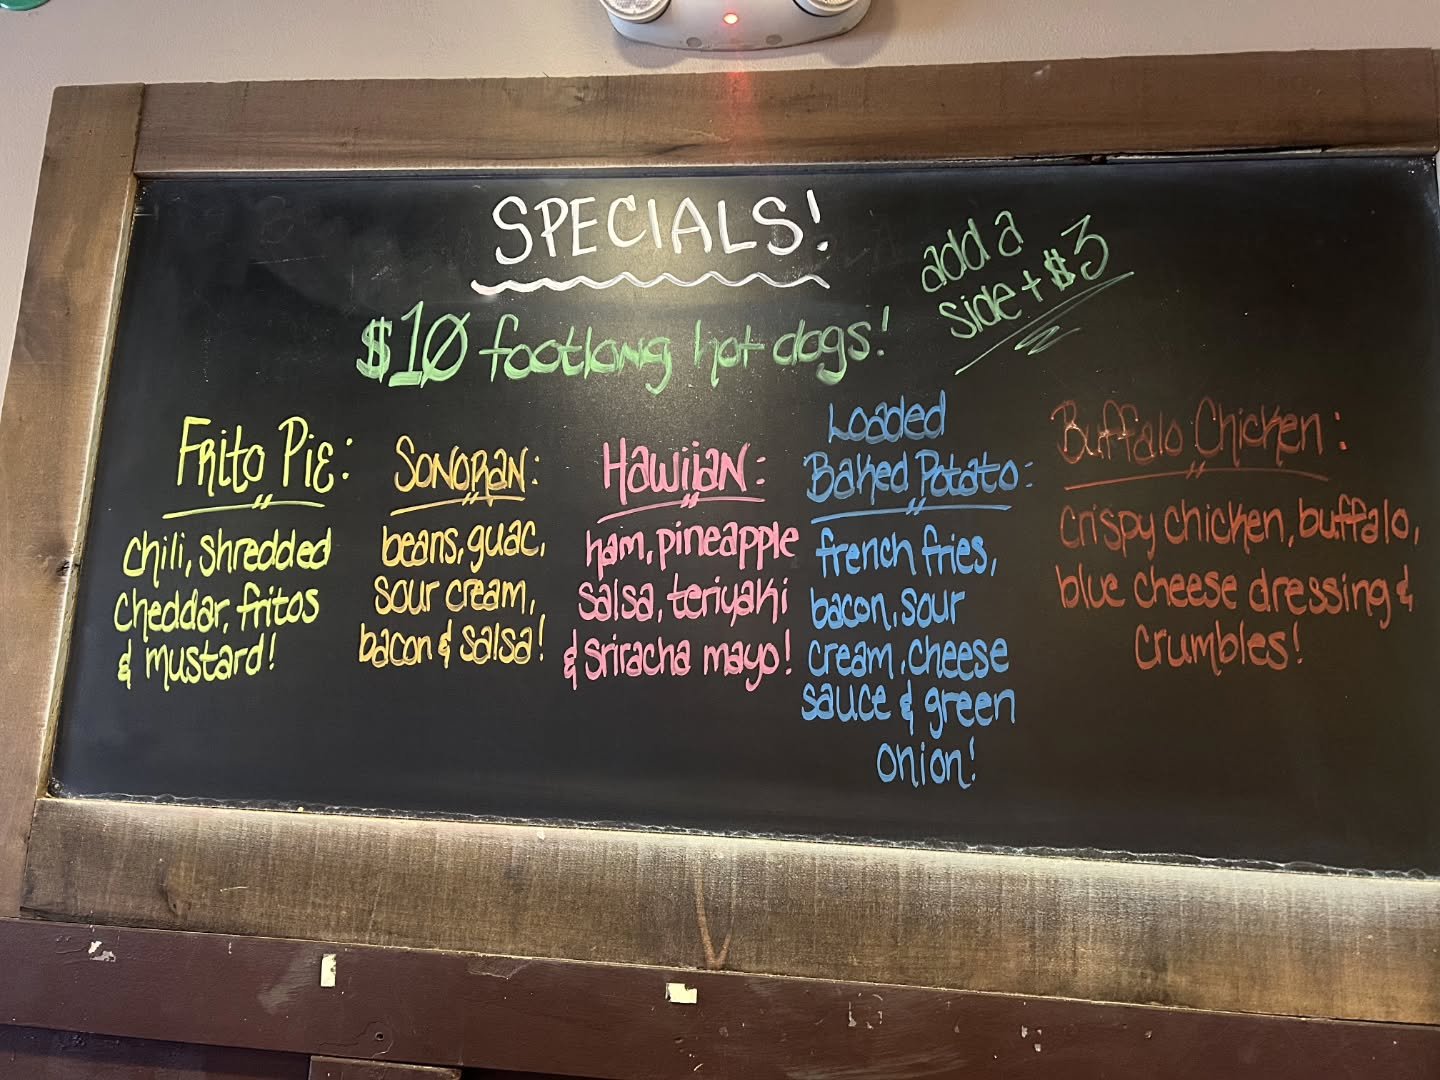 SPECIALS!
add a
side + $3
$10 footlong hot dogs!
Frito Pie:
chili, shredded
cheddar, fritos
& mustard!
Sonoran:
beans, guac,
sour cream,
bacon & salsa!
Hawiian:
ham, pineapple
salsa, teriyaki
& sriracha mayo!
Loaded
Baked Potato:
french fries,
bacon, sour
cream, cheese
sauce & green
onion!
Buffalo Chicken:
crispy chicken, buffalo,
blue cheese dressing &
crumbles!